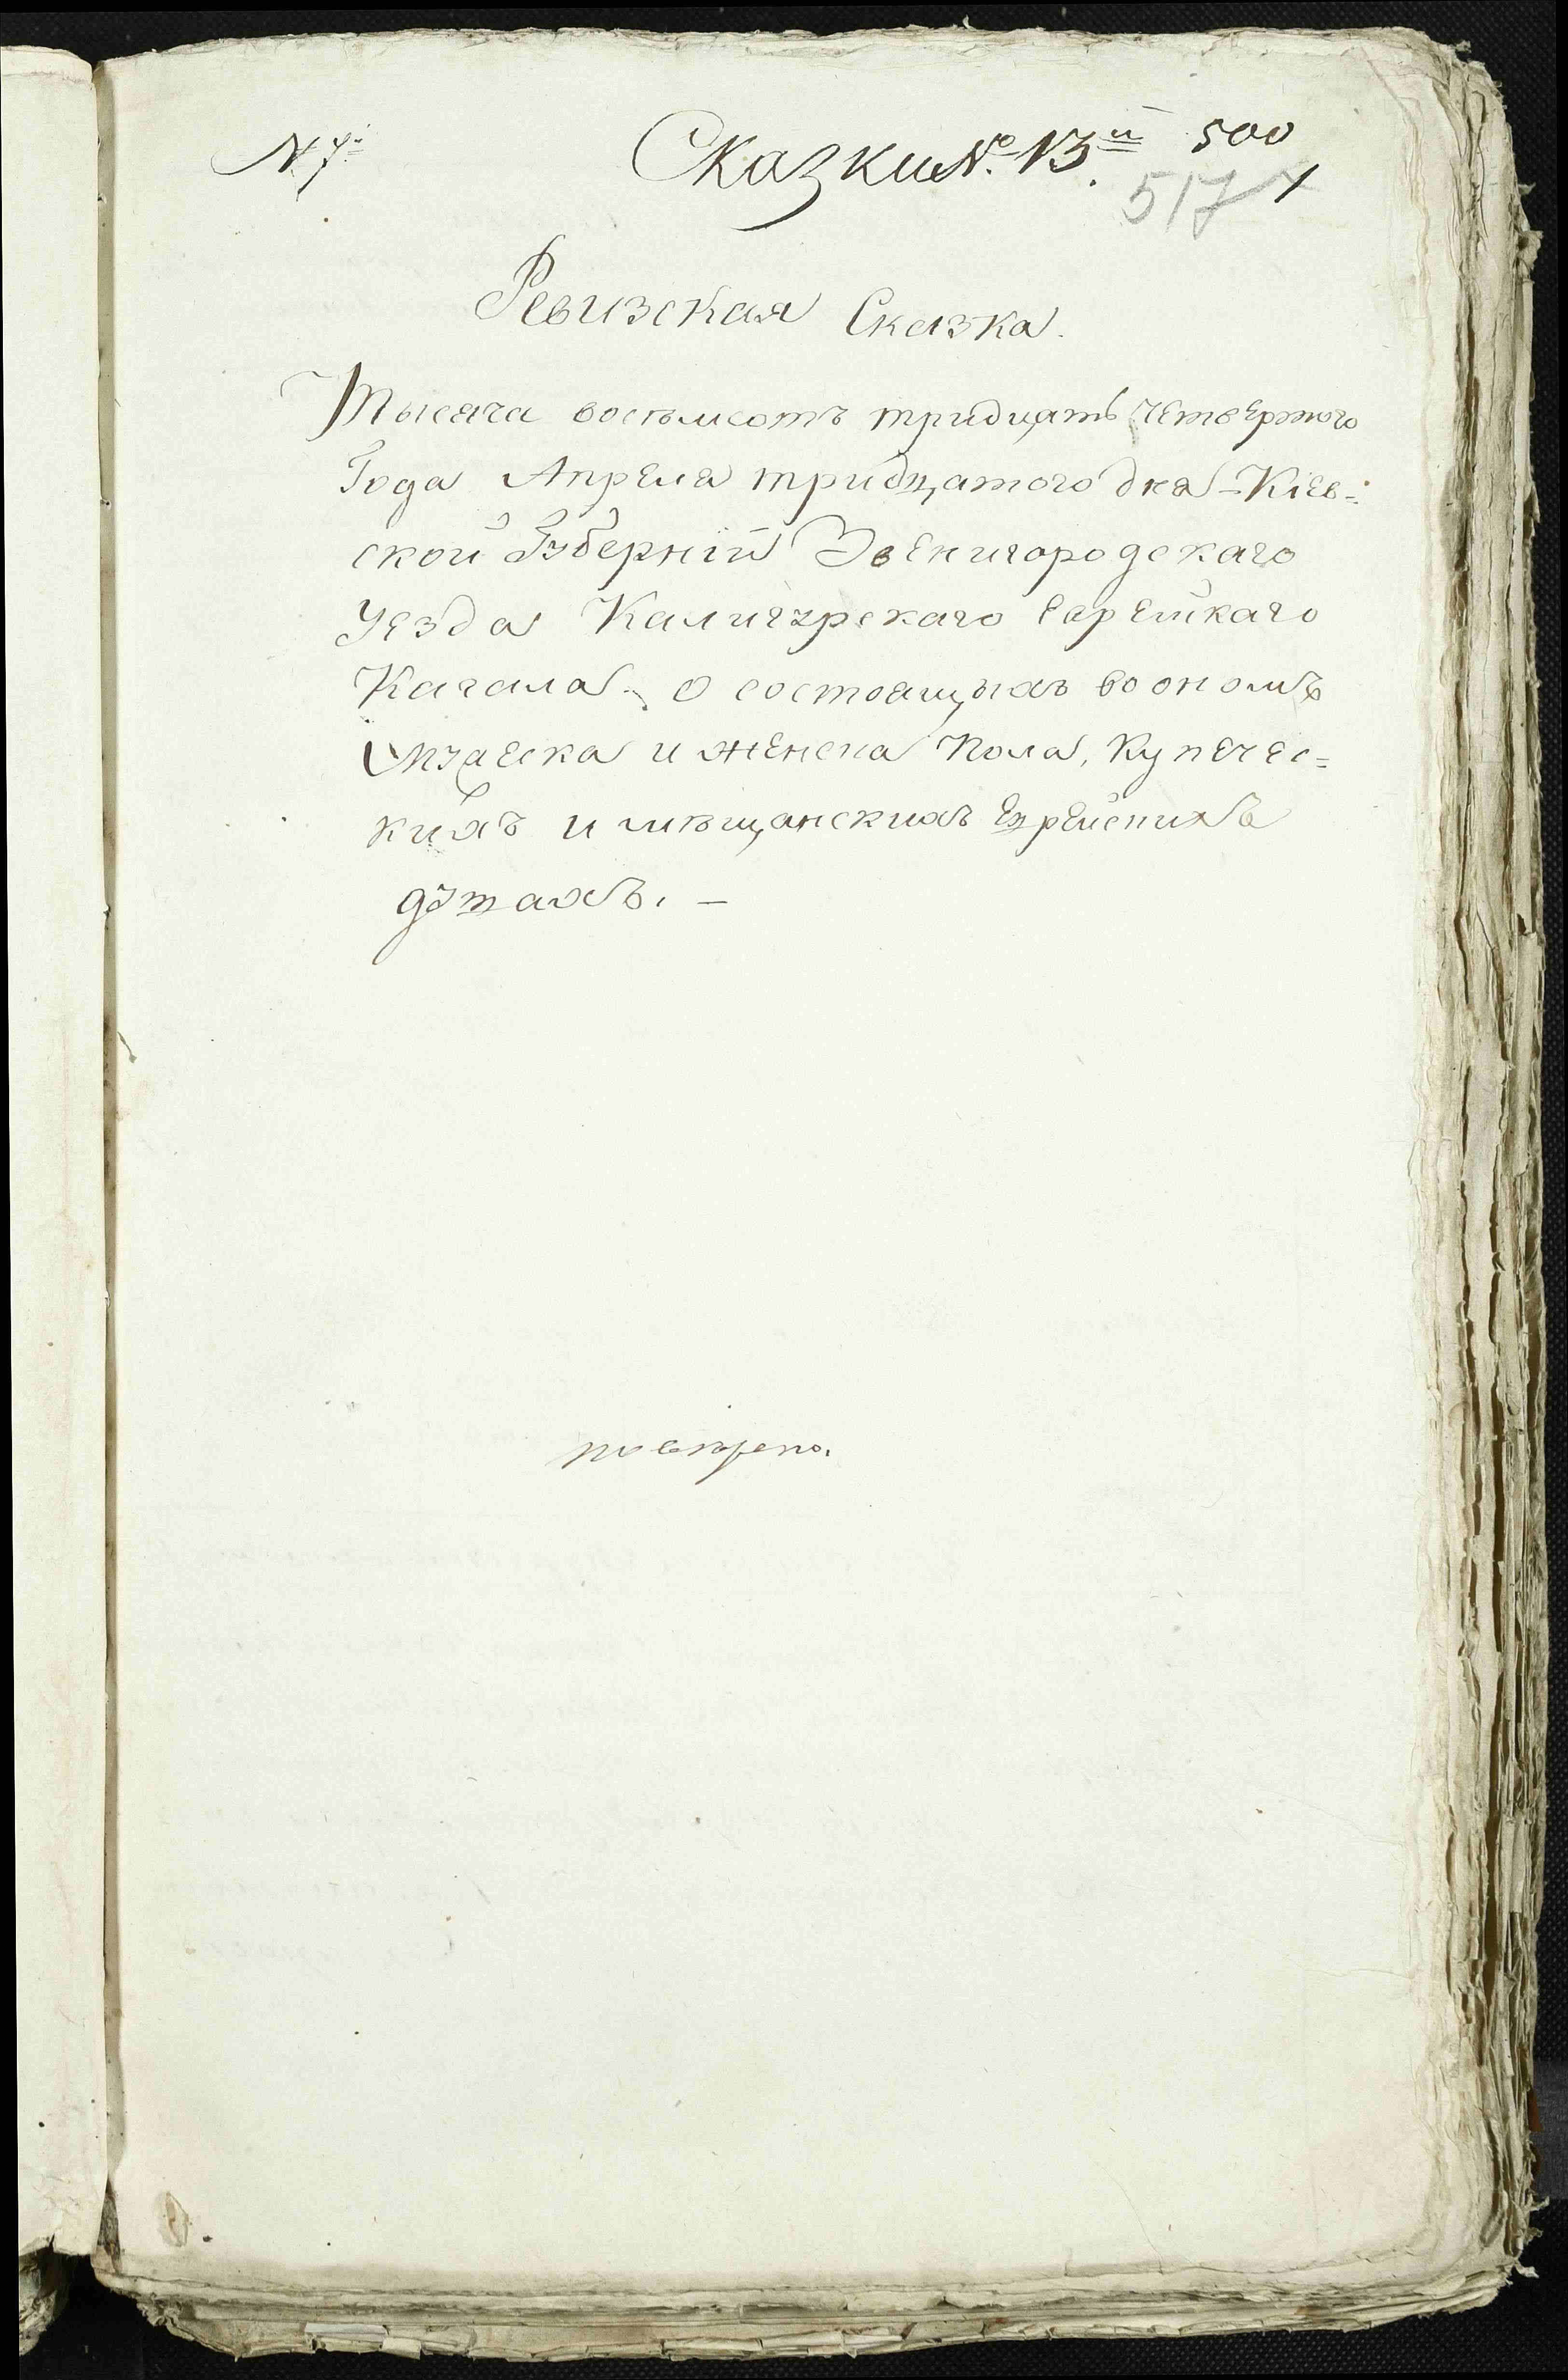 N 7й
Сказки №. 13.й 500
517
Ревизская Сказка.
Тысяча восѣмсотъ тридцать четвертого
Года Апреля тридцатого дня - Кіев-
ской Губерній Звенигородскаго
Уезда Калигурскаго еврейскаго
Кагала. О состоящыхъ во ономъ
мужеска и женска пола, купечес-
кихъ и мѣщанскихъ еврейскихъ
душахъ. -
поверено.